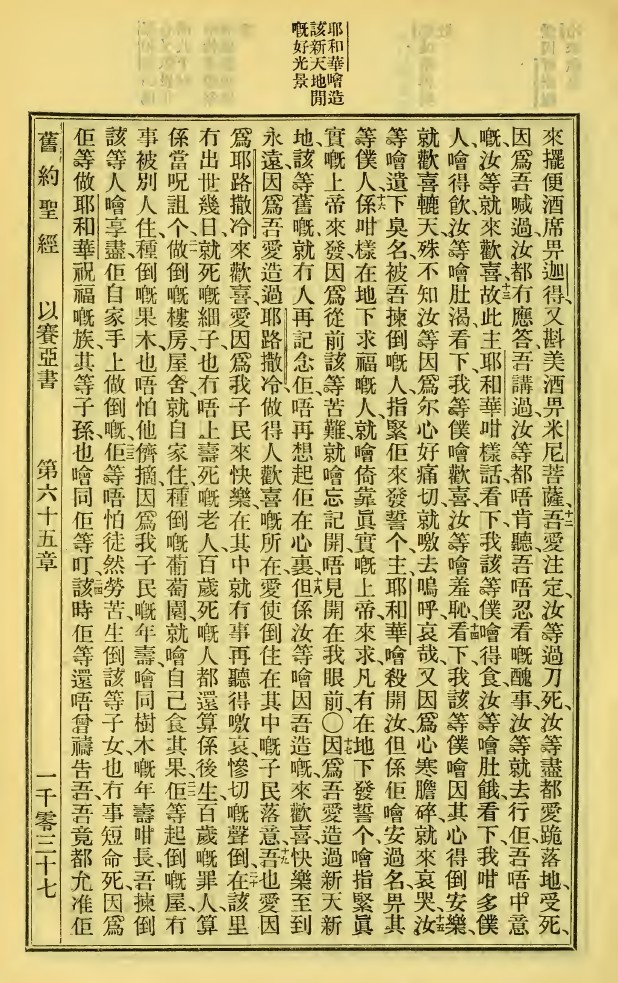 耶和華噲造
該新天地開
嘅好光景
來擺便酒席畀迦得、又斟美酒畀米尼菩薩、十二吾愛注定、汝等過刀死、汝等盡都愛跪落地、受死、
因爲吾喊過汝都冇應答、吾講過汝等都唔肯聽、吾唔忍看嘅醜事、汝等就去行、佢吾唔中意
嘅、汝等就來歡喜、十三故此主耶和華咁樣話、看下我該等僕噲得食、汝等噲肚餓、看下我咁多僕
人噲得飮、汝等噲肚渴、看下我等僕噲歡喜、汝等噲羞恥、十四看下我該等僕噲因其心得倒安樂、
就歡喜轆天殊不知汝等因爲尔心好痛切、就噭去嗚呼哀哉、又因爲心寒膽碎、就來哀哭、十五汝
等噲遺下臭名、被吾揀倒嘅人、指緊佢來發誓个主耶和華噲殺開汝、但係佢噲安過名畀其
等僕人、十六係咁樣在地下求福嘅人、就噲倚靠眞實嘅上帝來求、凡有在地下發誓个、噲指緊眞
實嘅上帝來發、因爲從前該等苦難就噲忘記開、唔見開在我眼前、〇十七因爲吾愛造過新天新
地、該等舊嘅、就冇人再記念佢、唔再想起佢在心裏、十八但係汝等噲因吾造嘅、來歡喜快樂、至到
永遠、因爲吾愛造過耶路撒冷、做得人歡喜嘅所在、愛使倒住在其中嘅子民落意、十九吾也愛因
爲耶路撒冷來歡喜、愛因爲我子民來快樂、在其中就冇事再聽得噭哀慘切嘅聲倒、二十在該里
冇出世幾日、就死嘅細子、也冇唔上壽死嘅老人、百歲死嘅人、都還算係後生、百歲嘅罪人、算
係當呪詛个、二一做倒嘅樓房屋舍、就自家住、種倒嘅葡萄園、就噲自己食其果、二二佢等起倒嘅屋、冇
事被別人住、種倒嘅果木、也唔怕他儕摘、因爲我子民嘅年壽、噲同樹木嘅年壽咁長、吾揀倒
該等人、噲享盡佢自家手上做倒嘅、二三佢等唔怕徒然勞苦、生倒該等子女、也冇事短命死、因爲
佢等做耶和華祝福嘅族、其等子孫也噲同佢等叮、二四該時佢等還唔曾禱告吾、吾竟都允准佢
舊約聖經　以賽亞書　第六十五章　一千零三十七